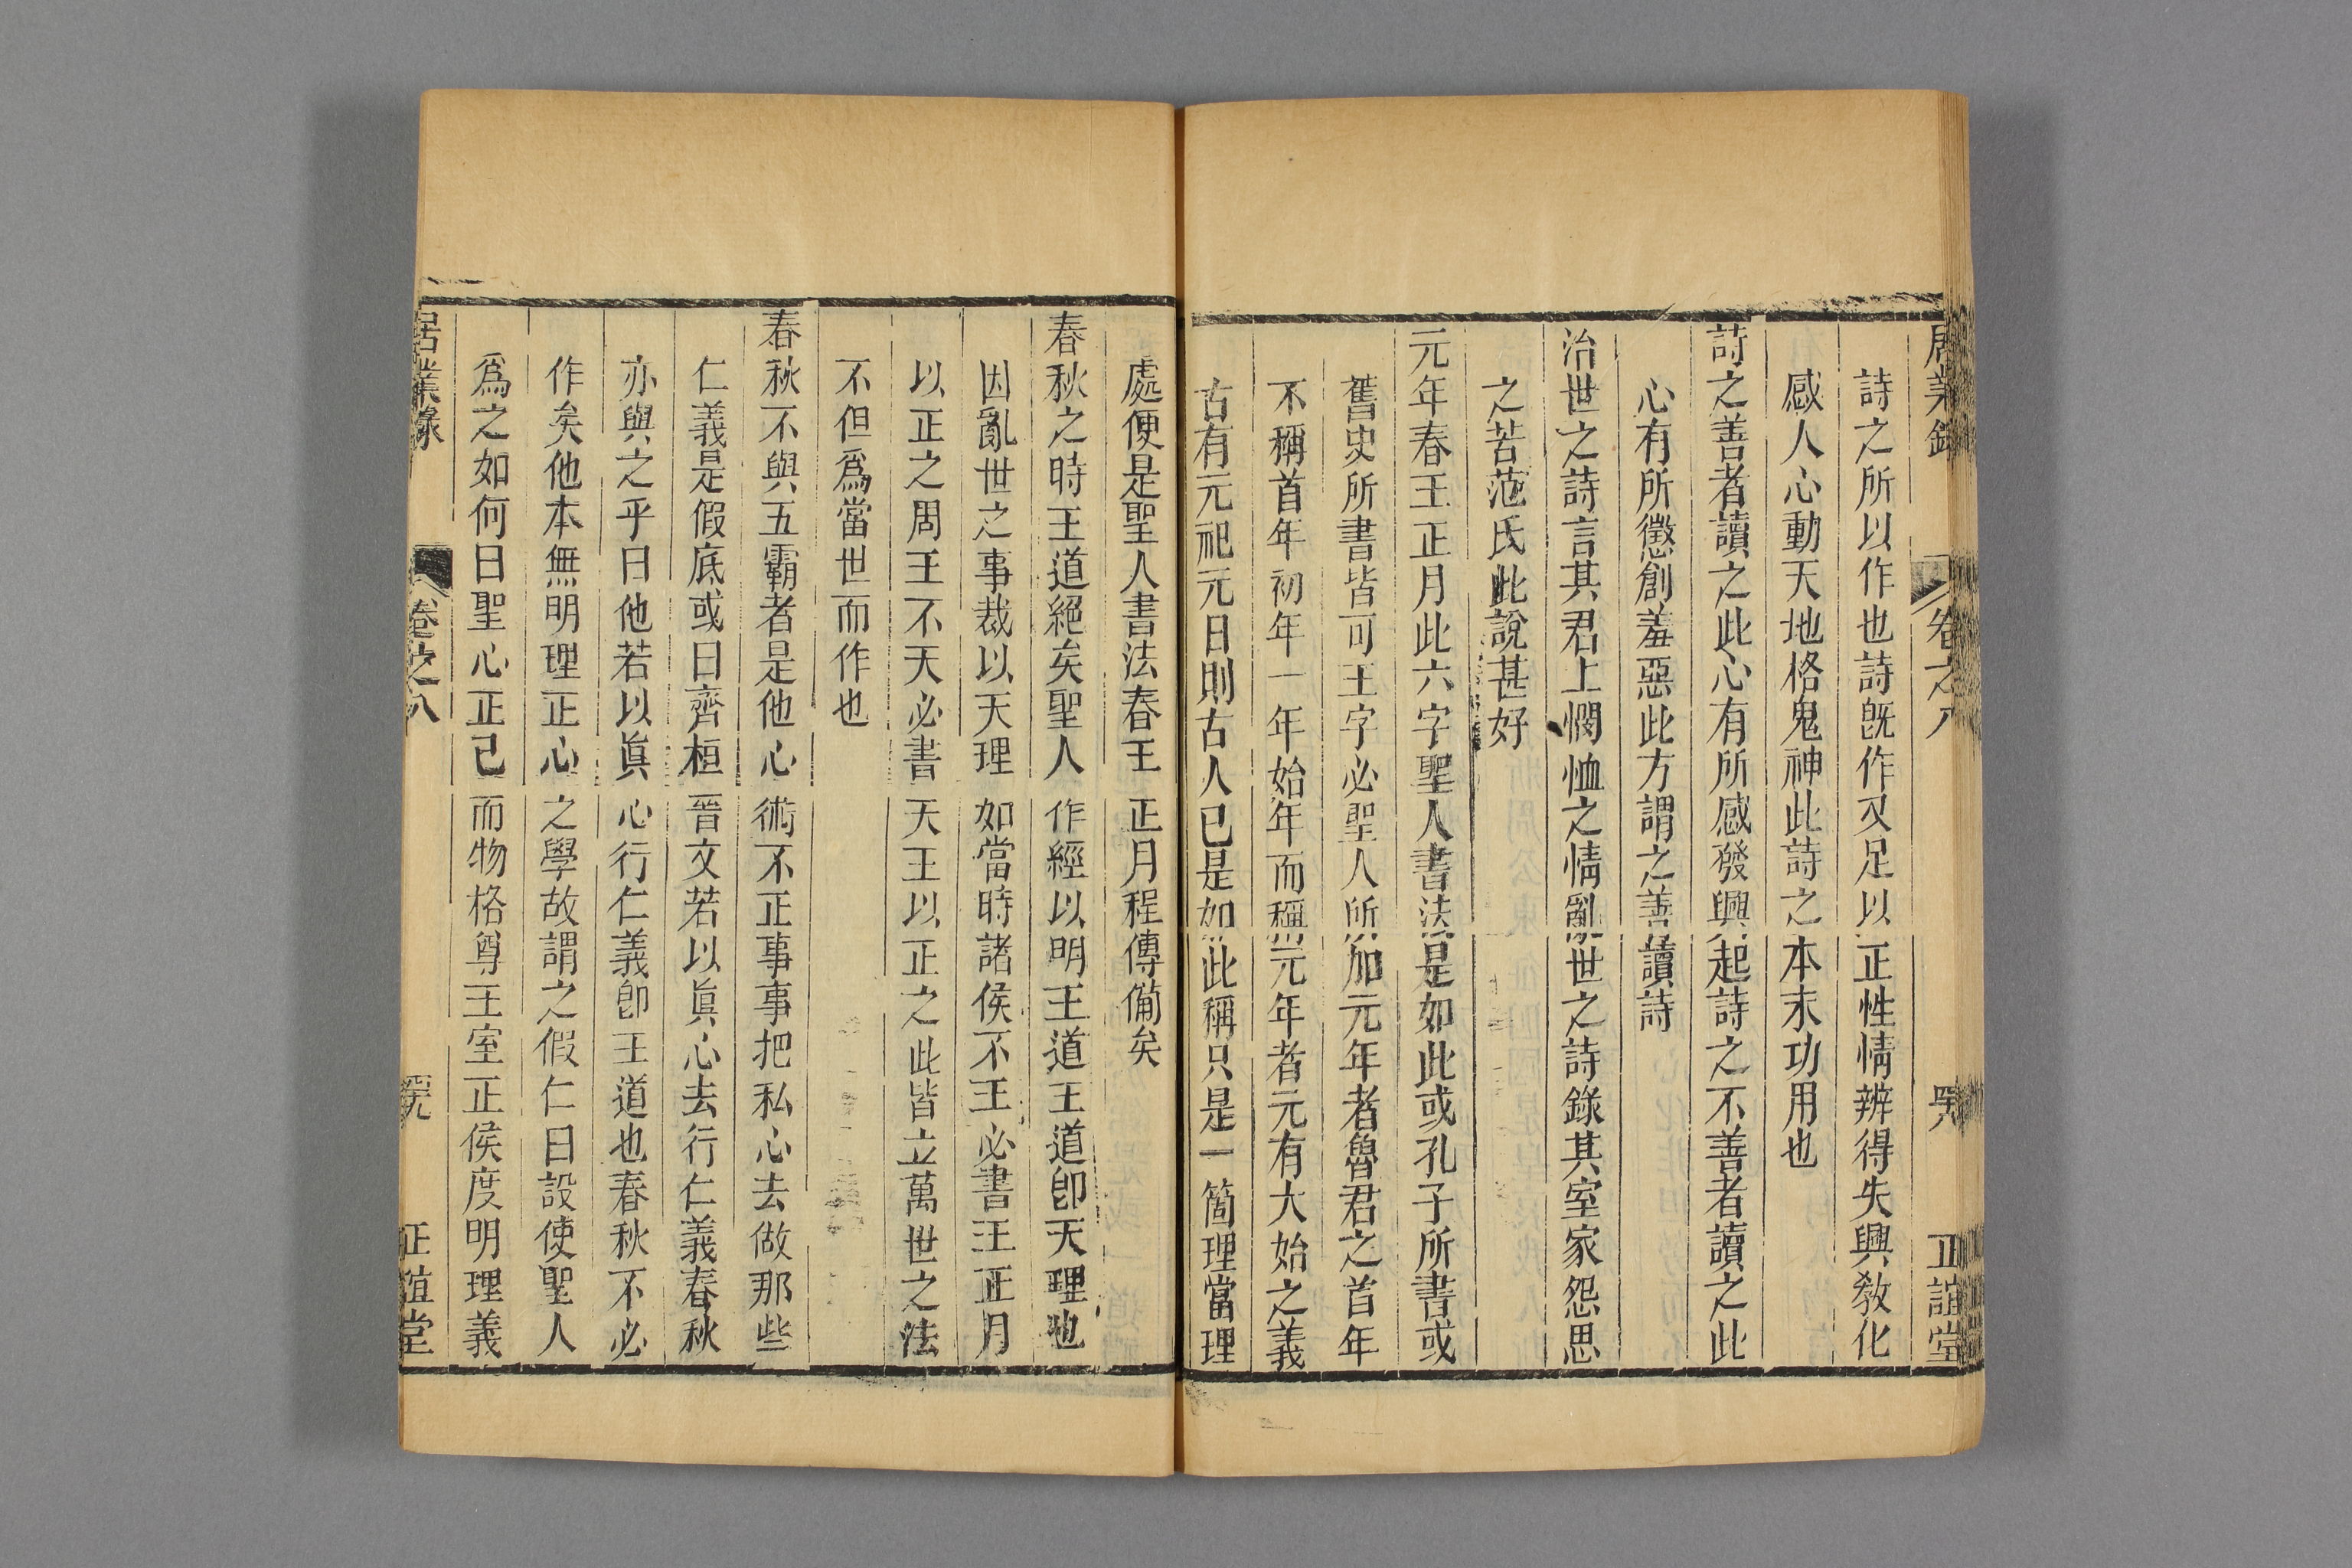 居業錄 卷之八 咒 正誼堂
詩之所以作也詩既作又足以正性情辨得失興教化
感人心動天地格鬼神此詩之本末功用也
詩之善者讀之此心有所感發興起詩之不善者讀之此
心有所懲創羞惡此方謂之善讀詩
治世之詩言其君上憫恤之情亂世之詩錄其室家怨思
之苦范氏此說甚好
元年春王正月此六字聖人書法是如此或孔子所書或
舊史所書皆可王字必聖人所加元年者魯君之首年
不稱首年初年一年始年而稱元年者元有大始之義
古有元祀元日則古人已是如此稱只是一箇理當理
處便是聖人書法春王正月程傳備矣
春秋之時王道絕矣聖人作經以明王道王道卽天理也
因亂世之事裁以天理如當時諸侯不王必書王正月
以正之周王不天必書天王以正之此皆立萬世之法
不但爲當世而作也
春秋不與五霸者是他心術不正事事把私心去做那些
仁義是假底或曰齊桓晉文若以眞心去行仁義春秋
亦與之乎曰他若以眞心行仁義卽王道也春秋不必
作矣他本無明理正心之學故謂之假仁曰設使聖人
爲之如何曰聖心正己而物格尊王室正侯度明理義
居業錄 卷之八 正誼堂